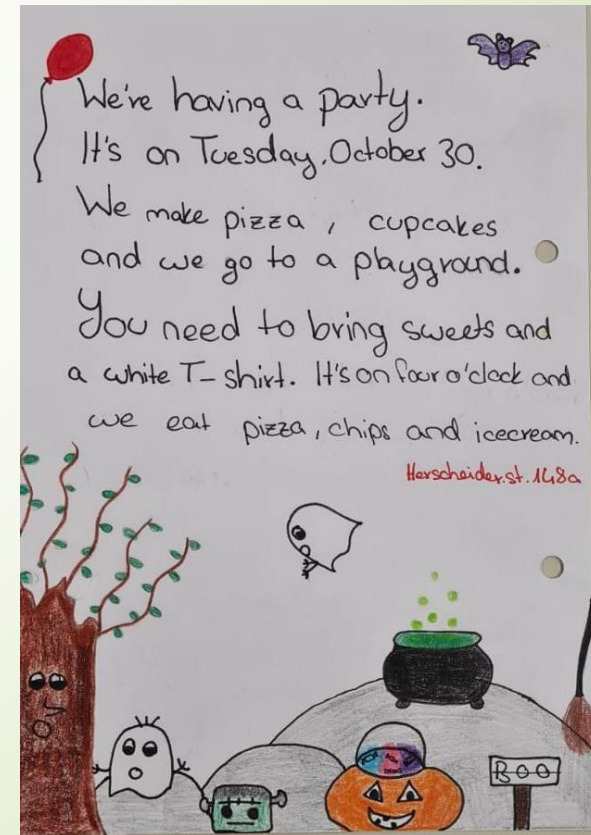 We're having a party.
It's on Tuesday, October 30.
We make pizza, cupcakes
and we go to a playground.
You need to bring sweets and
a white T-shirt. It's on four o'clock and
we eat pizza, chips and icecream.
Herscheider.st. 148a
BOO